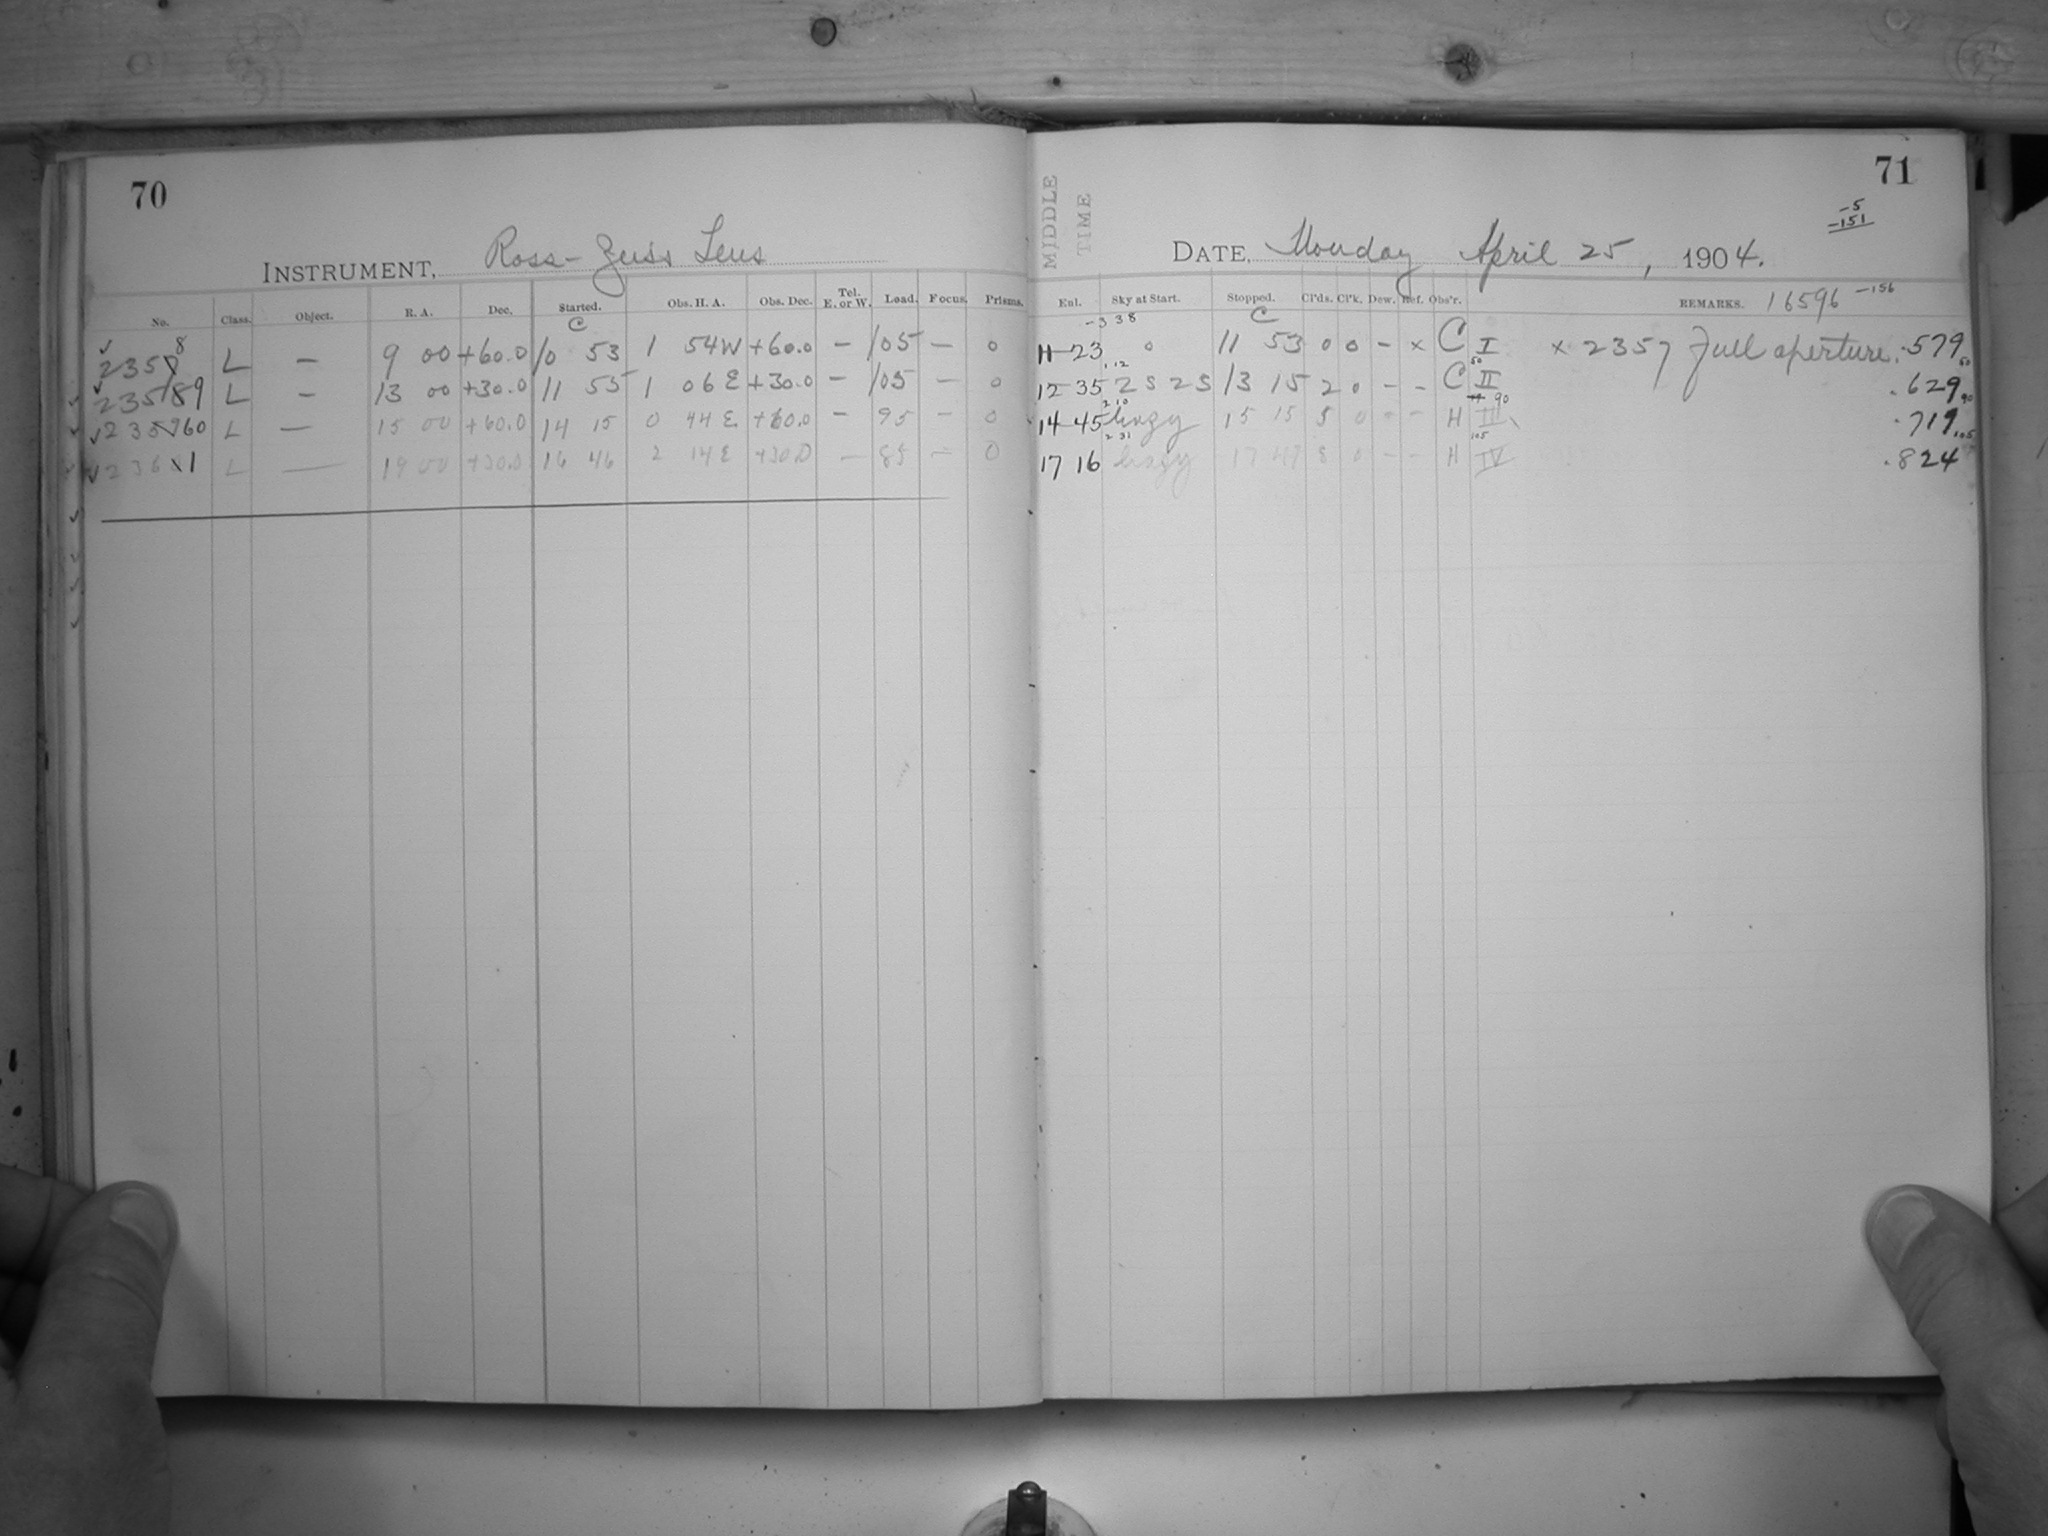 70
INSTRUMENT, Ross-Zeiss Lens
No. Class. Object. R. A. Dec. Started. Obs. H. A. Obs. Dec. Tel. E. or W. Load. Focus. Prisms.
C
2358 L — 9 00 +60.0 10 53 1 54W +60.0 — 105 — 0
L — 13 00 +30.0 11 55 1 06 E +30.0 — 105 — 0
L — 15 00 +60.0 14 15 0 44 E +60.0 — 95 — 0
L — 19 00 +30.0 16 46 2 14 E +30.0 — 85 — 0
MIDDLE TIME
71
-5
-151
DATE, Monday April 25, 1904.
Enl. Sky at Start. Stopped. Cl'ds. Cl'k. Dew. Ref. Obs'r. REMARKS. 16596 -156
-3 38 C
11-23 0 11 53 0 0 - x C I x 2357 Full aperture. .579
1 12 50 50
12-35 2 S 2 S 13 15 2 0 - - C II .629
2 10 90 90
14-45 hazy 15 15 5 0 - - H III .719
2 31 105 105
17 16 hazy 8 0 - - H IV .824